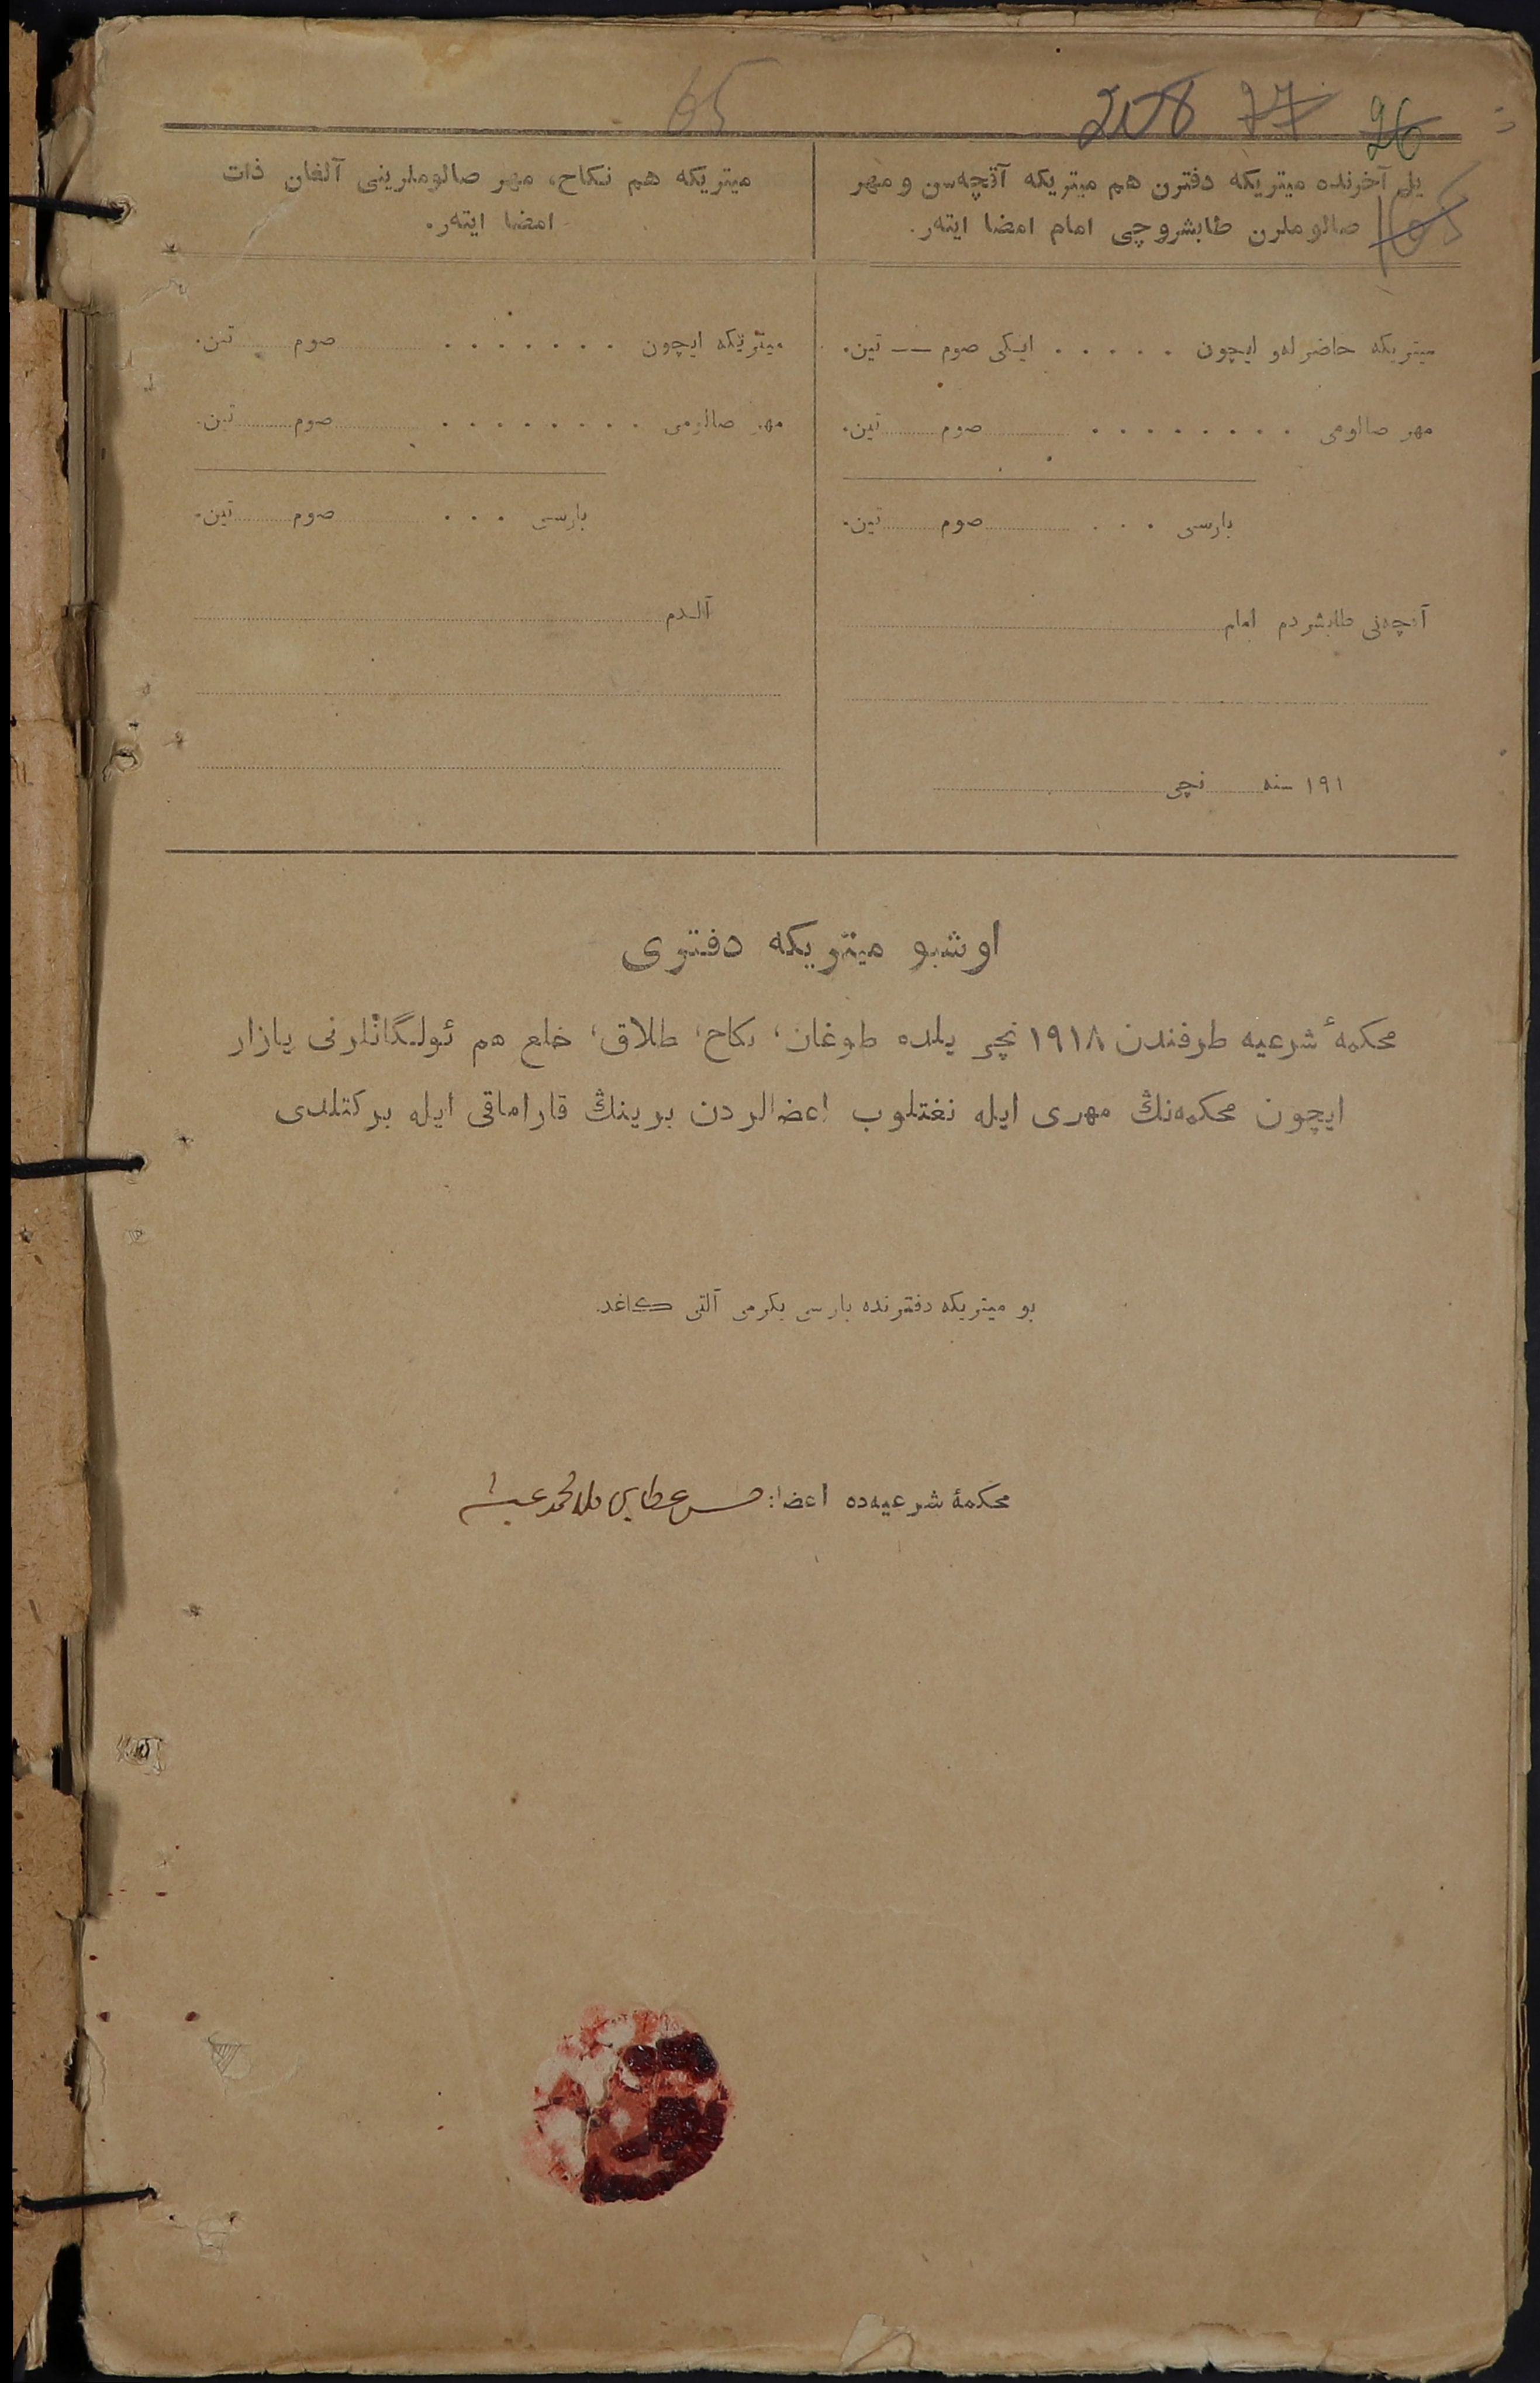 65
208 77 26
105
یل آخرنده میتریکه دفترن هم میتریکه آقچه‌سن و مهر
صالوملرن طابشروچی امام امضا ایته‌ر.
میتریکه حاضرله‌و ایچون . . . . . ایکی صوم — تین.
مهر صالومی . . . . . . . . صوم تین.
بارسی . . . صوم تین.
آقچه‌نی طابشردم امام
١٩١ سنه نچی
میتریکه هم نکاح، مهر صالوملرینی آلغان ذات
امضا ایته‌ر.
میتریکه ایچون . . . . . . . صوم تین.
مهر صالومی . . . . . . . . صوم تین.
بارسی . . . صوم تین.
آلدم
اوشبو میتریکه دفتری
محکمهٔ شرعیه طرفندن ١٩١٨ نچی یلده طوغان، نکاح، طلاق، خلع هم ئولگانلرنی یازار
ایچون محکمه‌نڭ مهری ایله نغتلوب اعضالردن برینڭ قاراماقی ایله برکتلدی
بو میتریکه دفترنده بارسی یکرمی آلتی کاغد.
محکمهٔ شرعیه‌ده اعضا: